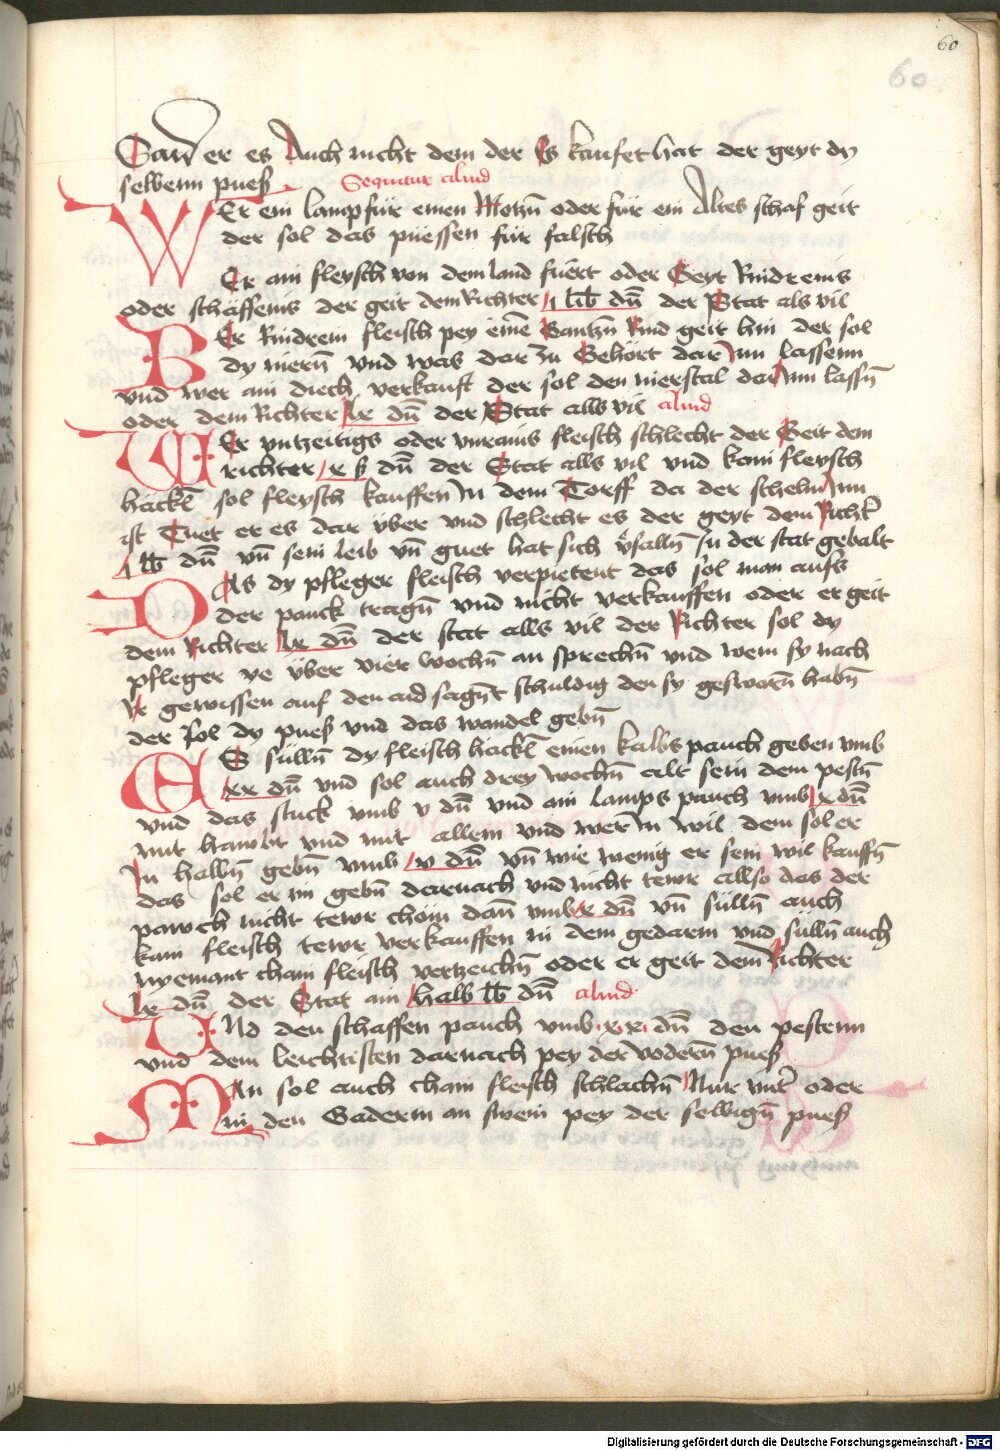 60
60
Saw er es Auch nicht dem der Es kaufet hat der geyt dy
selbenn pueß Sequitur aliud
WEr ein lamp für einen Motzn̄ oder für ein Altes schaf geit
der sol das püessen für falsch
Er ain fleysch von dem land fuert oder Geyt Rindrenis
oder schäffenis der geit dem Richter j lib dn̄ der Stat als vil
Er Rindrein fleisch pey einē Gantzn̄ Rind geit hin der sol
dy niern̄ vnd was dar zu Gehört dar Inn lassenn
vnd wer ain diech verkauft der sol den nierstal dar Inn lassn̄
oder dem Richter lx dn̄ der Stat alls vil aliud
WEr vntzeitigs oder vnrainis fleisch schlecht der Geit dem
richter x ß dn̄ der Stat alls vil vnd kain fleysch
häckl sol fleysch kauffen In dem Torff da der schelm Inn
ist Tuet er es dar über vnd schlecht es der geyt dem Richt
j lb dn̄ vn̄ sein leib vn̄ guet hat sich vfalln̄ In der stat gebalt
DAs dy pfleger fleisch verpietent das sol man aufs
der panck tragn̄ vnd nicht verkauffen oder er geit
dem Richter lx dn̄ der stat alls vil der Richter sol dy
pfleger ye über vier wochn̄ an sprechn̄ vnd wem sy nach
Ir gewissen auf den aid sagn̄t schuldig den sy gesworn̄ habn̄
der sol dy pueß vnd das wandel gebn̄
ES sülln̄ dy fleisch häckl einen kalbs pauch geben vmb
xx dn̄ vnd sol auch drey wochn̄ alt sein dem pestn̄
vnd das stuck vmb v dn̄ vnd ain lamps pauch vmb x dn̄
mit hawbt vnd mit allem vnd wer In wil dem sol er
In halbn̄ gebn̄ vmb v dn̄ vn̄ wie wenig er sein wil kauffn̄
das sol er im gebn̄ darnach vnd nicht tewr allso das der
pawch nicht tewr chöm dan̄ vmb x dn̄ vn̄ sülln̄ auch
kain fleisch tewr verkauffen in dem gedarem vnd sülln̄ auch
nyemant cham fleisch vertzeichn̄ oder er geit dem Richter
lx dn̄ der Stat ain halb lb dn̄ aliud
VNd den schaffen pauch vmb x x dn̄ den pestenn
vnd dem leichtisten darnach pey der vodern̄ pueß
MAn sol auch cham fleisch schlachn̄ Nur vnt oder
in den Gaderm an swein pey der selbign̄ pueß
Digitalisierung gefördert durch die Deutsche Forschungsgemeinschaft - DFG